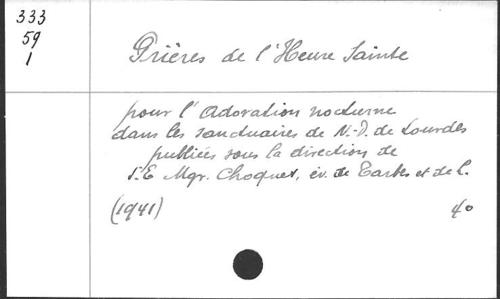 333
59
1
Prières de l'Heure Sainte
pour l'Adoration nocturne
dans les sanctuaires de N.-D. de Lourdes
publiées sous la direction de
S.E Mgr. Choquet, év. de Tarbes et de L.
(1941) 4o